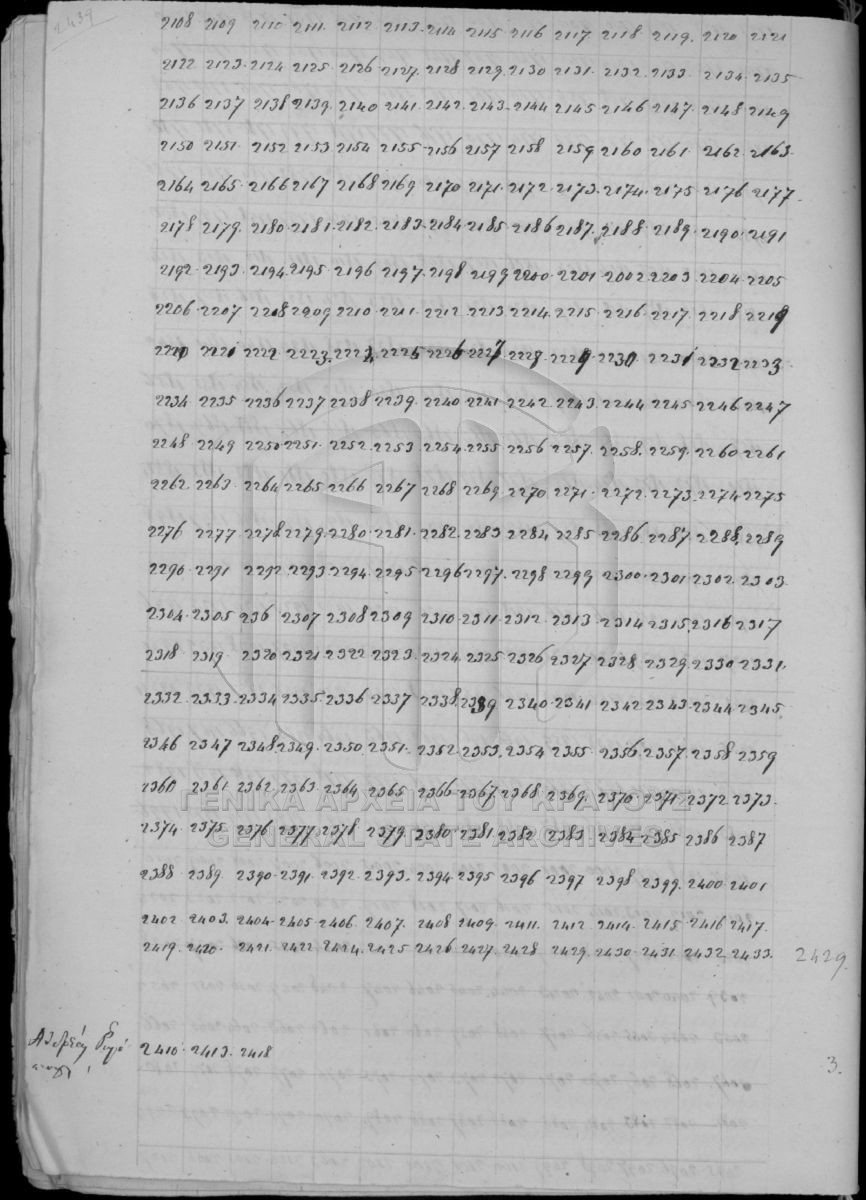 2439
2108 2109 2110 2111 2112 2113 2114 2115 2116 2117 2118 2119 2120 2121
2122 2123 2124 2125 2126 2127 2128 2129 2130 2131 2132 2133 2134 2135
2136 2137 2138 2139 2140 2141 2142 2143 2144 2145 2146 2147 2148 2149
2150 2151 2152 2153 2154 2155 2156 2157 2158 2159 2160 2161 2162 2163
2164 2165 2166 2167 2168 2169 2170 2171 2172 2173 2174 2175 2176 2177
2178 2179 2180 2181 2182 2183 2184 2185 2186 2187 2188 2189 2190 2191
2192 2193 2194 2195 2196 2197 2198 2199 2200 2201 2002 2203 2204 2205
2206 2207 2208 2209 2210 2211 2212 2213 2214 2215 2216 2217 2218 2219
2220 2221 2222 2223 2224 2225 2226 2227 2228 2229 2230 2231 2232 2233
2234 2235 2236 2237 2238 2239 2240 2241 2242 2243 2244 2245 2246 2247
2248 2249 2250 2251 2252 2253 2254 2255 2256 2257 2258 2259 2260 2261
2262 2263 2264 2265 2266 2267 2268 2269 2270 2271 2272 2273 2274 2275
2276 2277 2278 2279 2280 2281 2282 2283 2284 2285 2286 2287 2288 2289
2290 2291 2292 2293 2294 2295 2296 2297 2298 2299 2300 2301 2302 2303
2304 2305 236 2307 2308 2309 2310 2311 2312 2313 2314 2315 2316 2317
2318 2319 2320 2321 2322 2323 2324 2325 2326 2327 2328 2329 2330 2331
2332 2333 2334 2335 2336 2337 2338 2339 2340 2341 2342 2343 2344 2345
2346 2347 2348 2349 2350 2351 2352 2353 2354 2355 2356 2357 2358 2359
2360 2361 2362 2363 2364 2365 2366 2367 2368 2369 2370 2371 2372 2373
ΓΕΝΙΚΑ ΑΡΧΕΙΑ ΤΟΥ ΚΡΑΤΟΥΣ
2374 2375 2376 2377 2378 2379 2380 2381 2382 2383 2384 2385 2386 2387
GENERAL STATE ARCHIVES
2388 2389 2390 2391 2392 2393 2394 2395 2396 2397 2398 2399 2400 2401
2402 2403 2404 2405 2406 2407 2408 2409 2411 2412 2414 2415 2416 2417
2419 2420 2421 2422 2424 2425 2426 2427 2428 2429 2430 2431 2432 2433 2429
2410 2413 2418 3